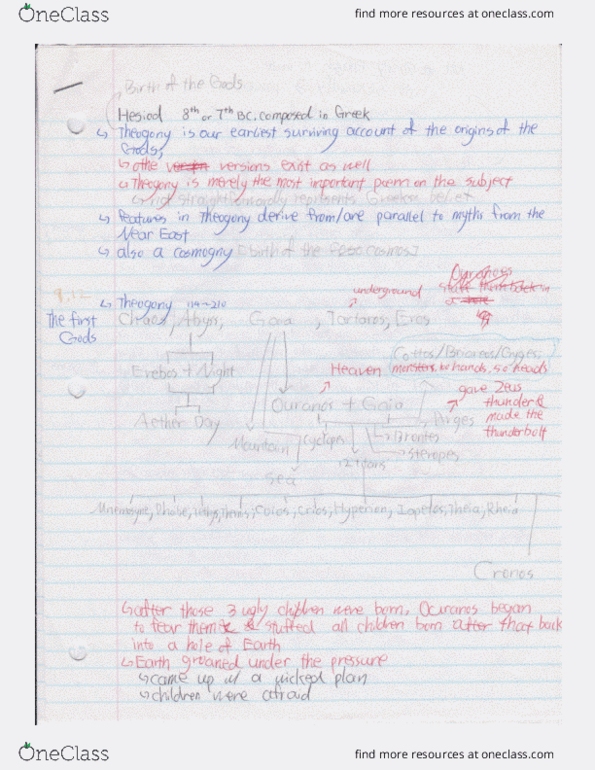 OneClass
find more resources at oneclass.com
Birth of the Gods
Hesiod 8th or 7th BC, composed in Greek
↳ Theogony is our earliest surviving account of the origins of the
Gods,
↳ othe versions exist as well
↳ Theogony is merely the most important poem on the subject
↳ not straightforwardly represents Greek belief
↳ features in Theogony derive from/are parallel to myths from the
Near East
↳ also a cosmogny [birth of the cosmos]
↳ Theogony 114-210
underground
Ouranos
The first
Gods
Chaos, Abyss, Gaia, Tartaros, Eros
Cottos/Briareos/Gyges,
Heaven
monsters, hands, 50 heads
Erebos + Night
gave Zeus
thunder &
made the
thunderbolt
Ouranos + Gaia
Aether Day
Arges
Mountain
Cyclops
Brontes
Steropes
12 titans
Sea
Mnemosyne, Phoibe, Themis, Coios, Crios, Hyperion, Iapetos, Theia, Rheia
Cronos
↳ after those 3 ugly children were born, Ouranos began
to fear them & stuffed all children born after that back
into a hole of Earth
↳ Earth groaned under the pressure
↳ came up w/ a wicked plan
↳ children were afraid
OneClass
find more resources at oneclass.com